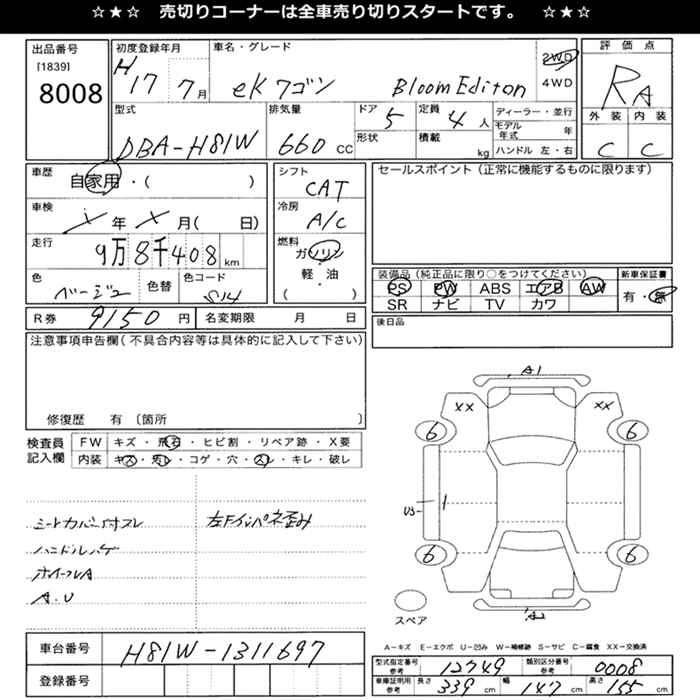 ☆★☆ 売切りコーナーは全車売り切りスタートです。 ☆★☆
出品番号
[1839]
8008
初度登録年月
H17 7月
車名・グレード
eKワゴン Bloom Editon
2WD
4WD
評価点
RA
外装 内装
C C
型式
DBA-H81W
排気量
660 CC
ドア
5
形状
定員
4 人
積載
kg
ディーラー・並行
モデル年式 年
ハンドル 左・右
車歴
自家用・( )
車検
年 月( 日)
走行
9万8千408 km
色
ベージュ
色替
色コード
S14
シフト
CAT
冷房
A/C
燃料
ガソリン
・
軽・油
( )
セールスポイント(正常に機能するものに限ります)
装備品(純正品に限り○をつけてください)
PS PW ABS エアB AW
SR ナビ TV カワ
新車保証書
有・無
R券 9150 円
名変期限 月 日
後日品
注意事項申告欄(不具合内容等は具体的に記入して下さい)
修復歴 有〔箇所 〕
検査員記入欄
FW キズ・飛石・ヒビ割・リペア跡・X要
内装 キズ・汚レ・コゲ・穴・スレ・キレ・破レ
シートカバー付スレ
左Fインパネ歪み
ハンドルハゲ
ホイールA
A.U
A1
XX XX
6 6
U3 1
6 6
スペア
車台番号 H81W-1311697
登録番号
A-キズ E-エクボ U-凹み W-補修跡 S-サビ C-腐食 XX-交換済
型式指定番号参考 12749 類別区分番号参考 0008
車庫証明用参考 長さ 339 cm 幅 147 cm 高さ 155 cm